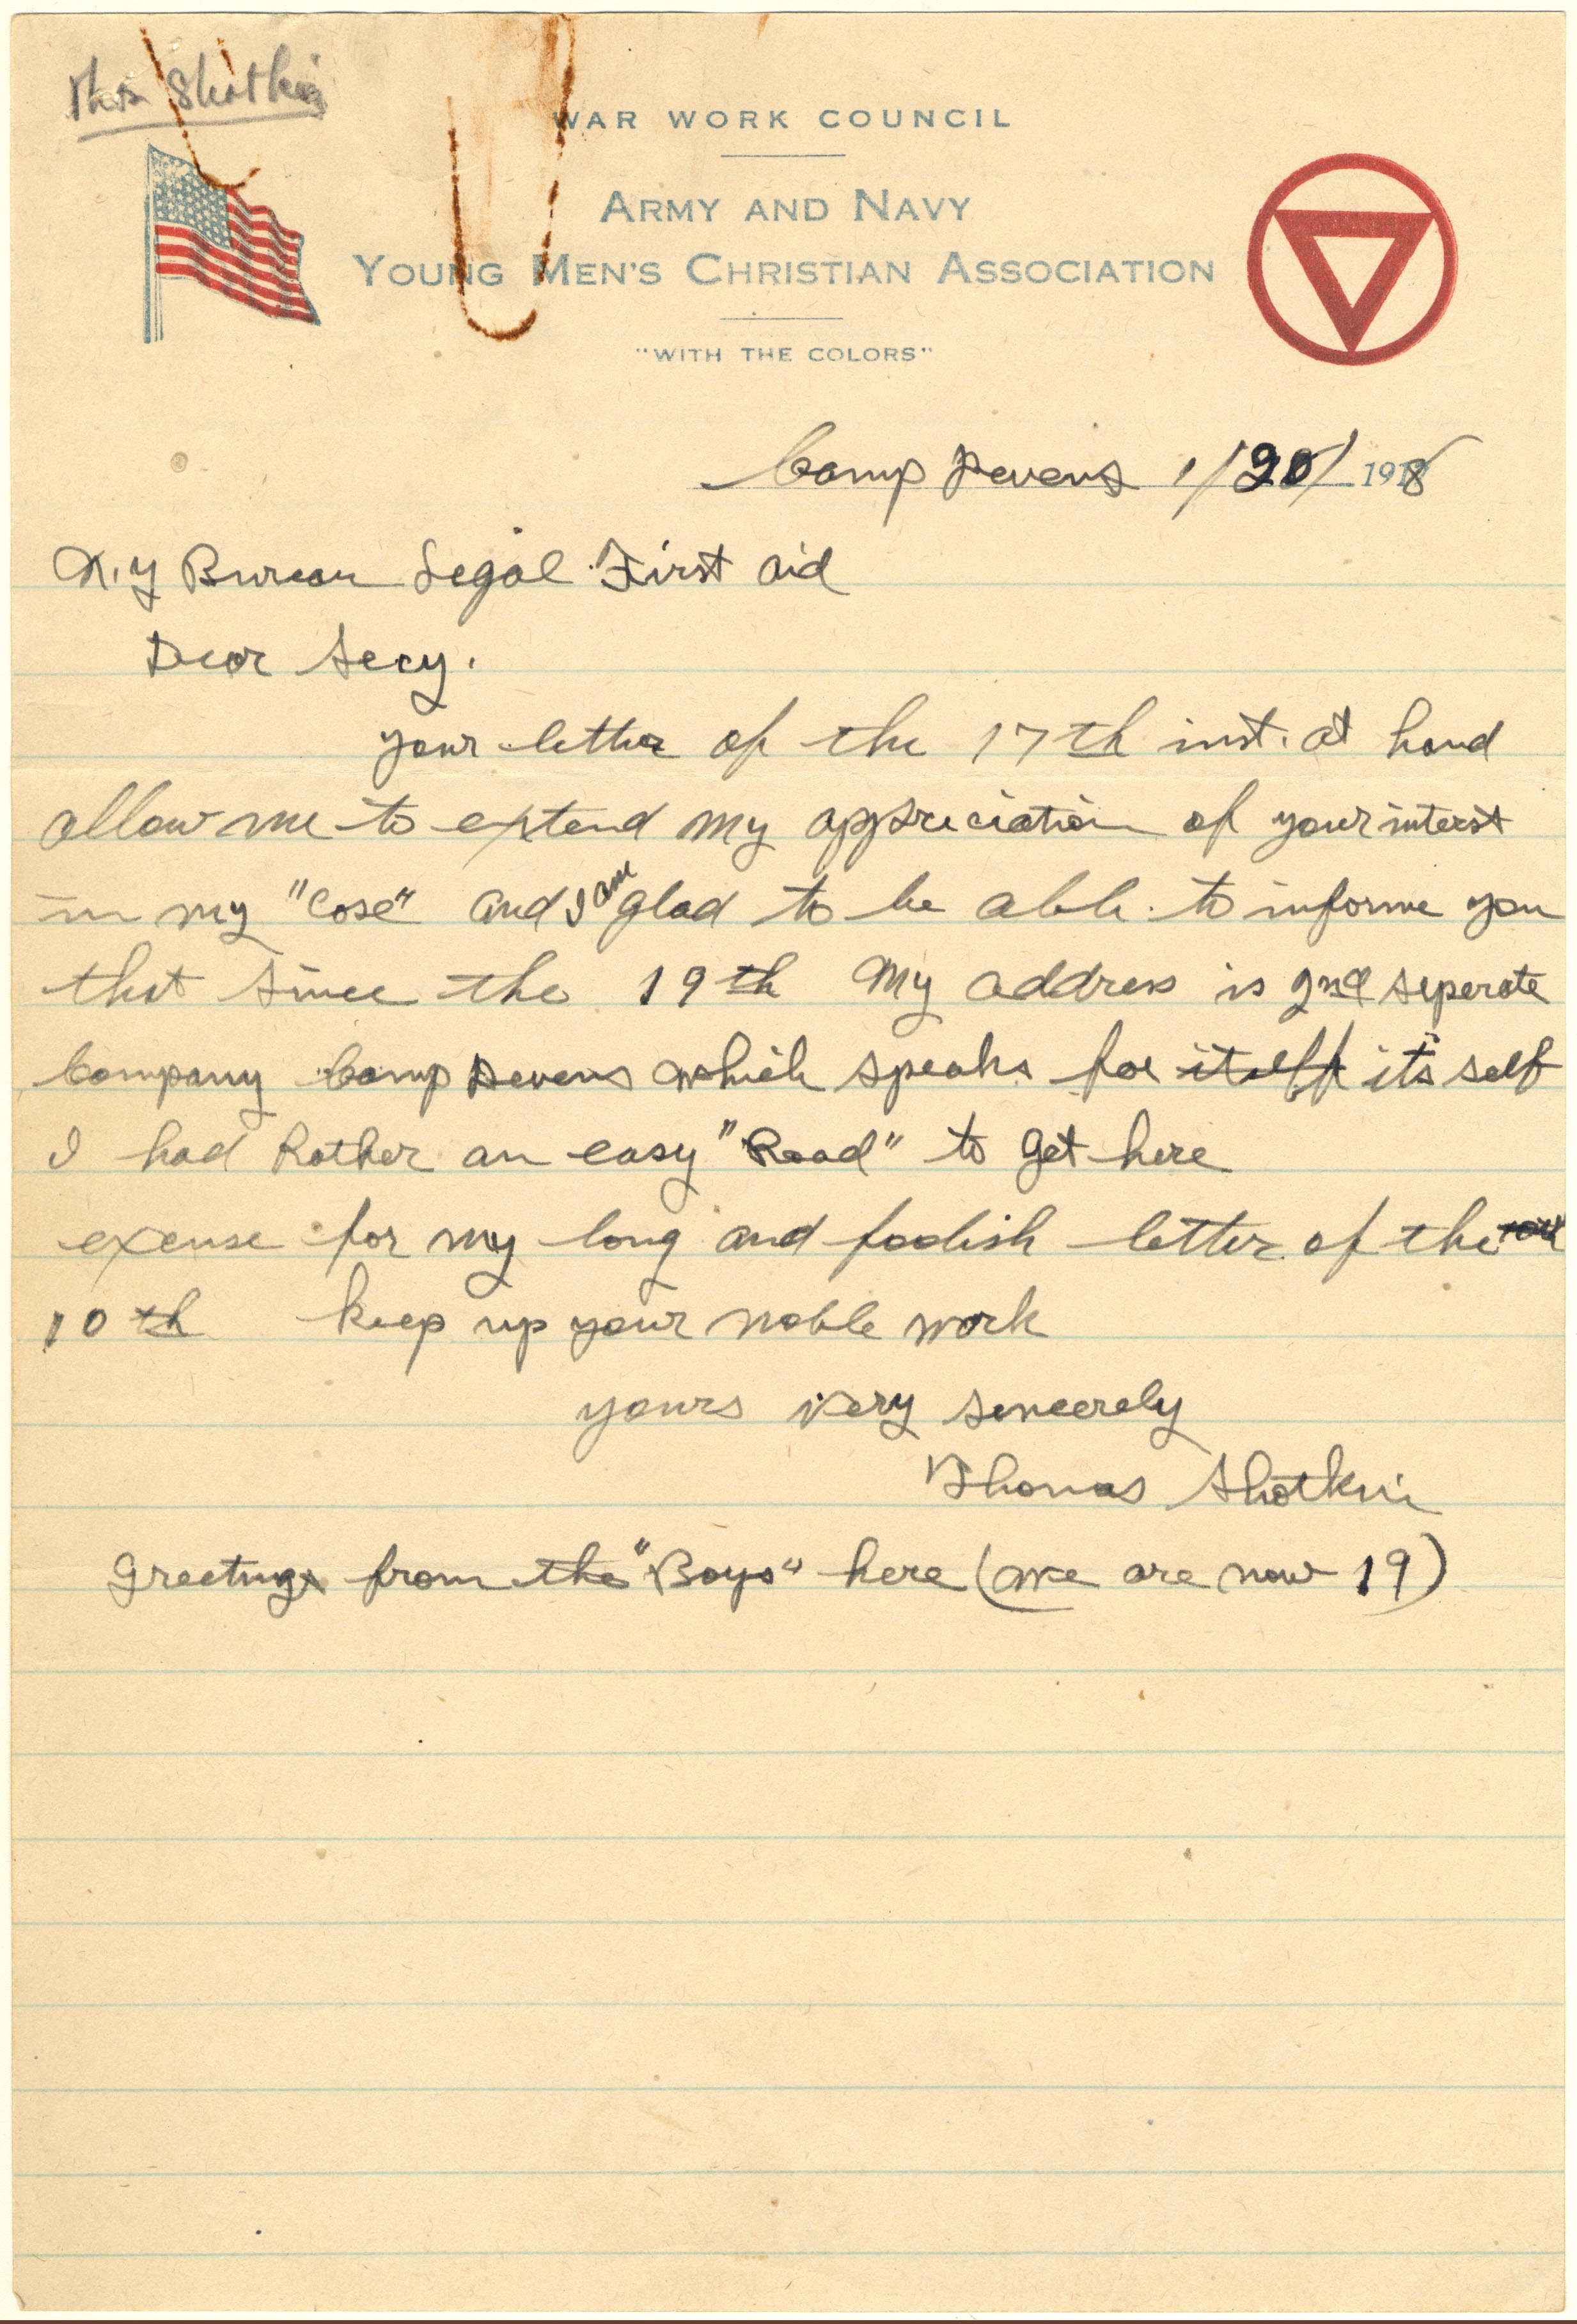 Thos Shotkin
WAR WORK COUNCIL
ARMY AND NAVY
YOUNG MEN'S CHRISTIAN ASSOCIATION
"WITH THE COLORS"
Camp Devens 1/20/ 1918
N.Y Bureau Legal First aid
Dear Secy.
your letter of the 17th inst. at hand
allow me to extend my appreciation of your interst
in my "Case" and I am glad to be able to informe you
that since the 19th My address is 2nd seperate
Company Camp Devens which speaks for itself its self
I had Rather an easy "Road" to get here
excuse for my long and foolish letter of the
10th keep up your noble work
yours very sincerely
Thomas Shotkin
Greetings from the "Boys" here (we are now 19)